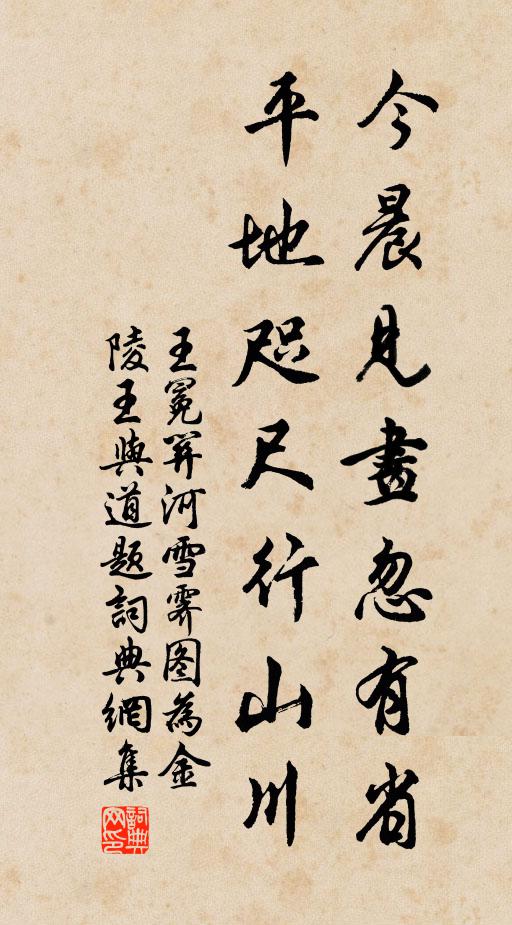 今晨見畫忽有省
平地咫尺行山川
王冕關河雪霽图為金
陵王與道题詞典網集
詞典网印